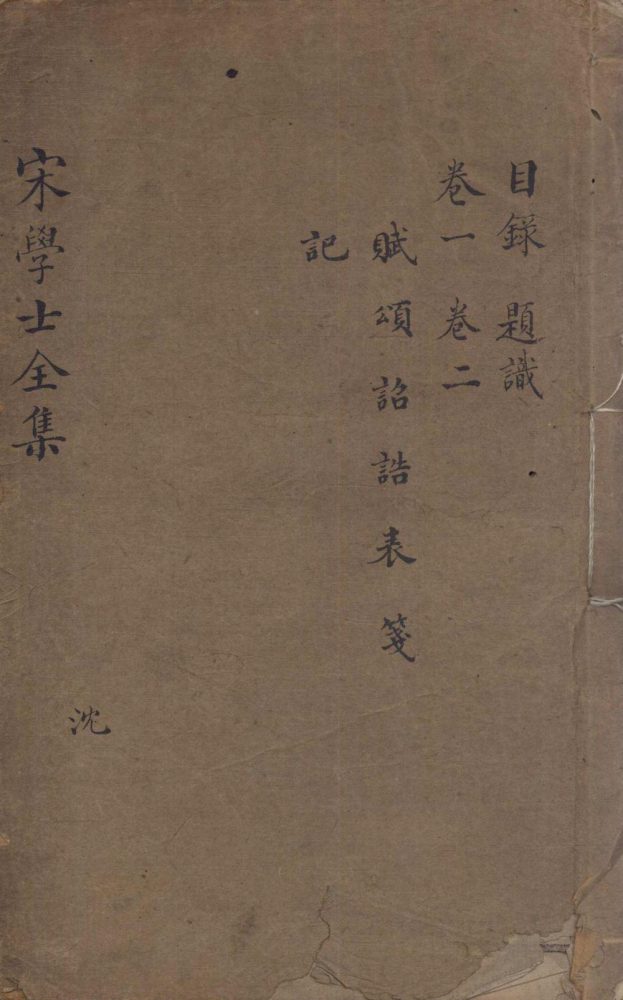 目錄 題識
卷一 卷二
賦頌詔誥表箋
記
沈
宋學士全集